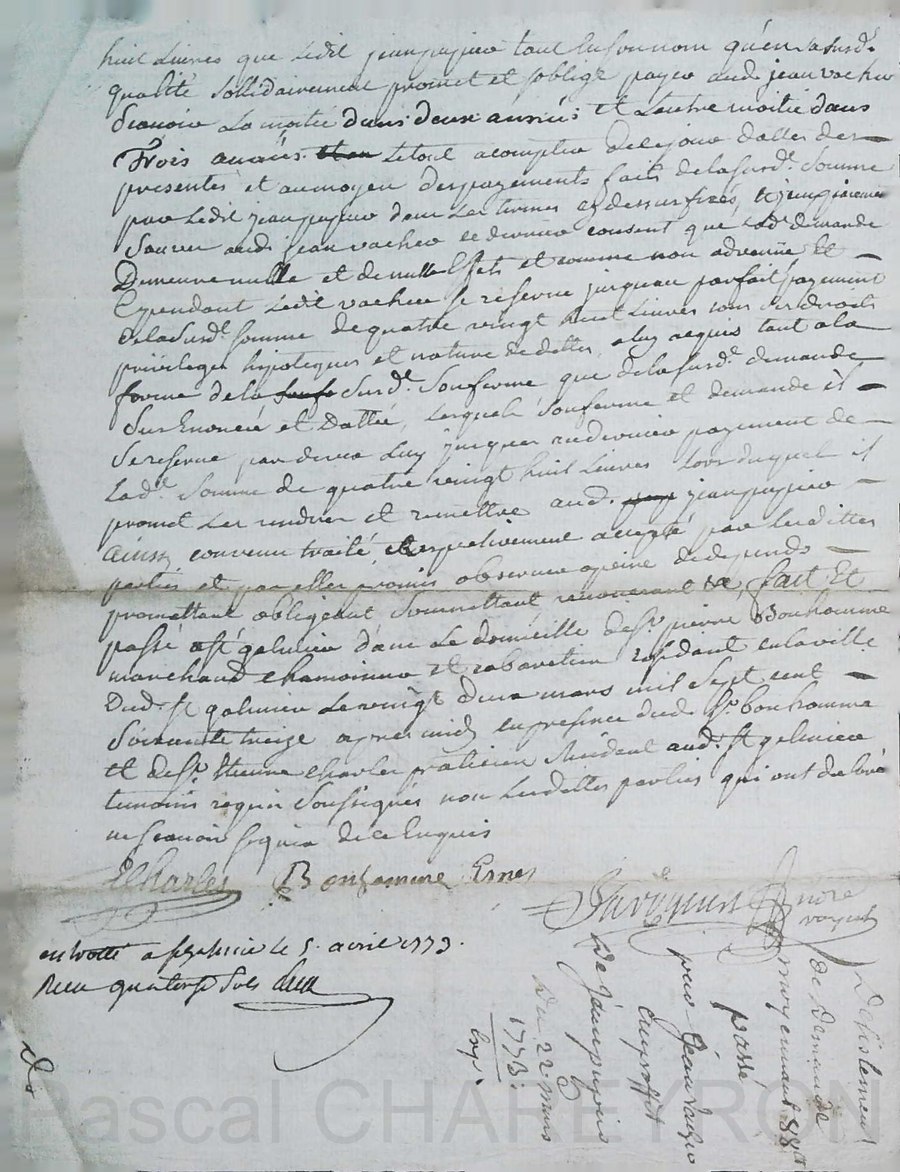 huit Livres que Ledit jean pupier tant En son nom qu'en sa susd.
qualité sollidairement promet et soblige payer aud jean vacher
scavoir La moitié dans deux années et Lautre moitié dans
Trois années Le tout a compter de ce jour datte des
presentes et au moyen des payements faits de la susd. somme
par Ledit jean pupier dans Les termes cy dessus fixés,
aud. jean vacher ce dernier consent que Lad. demande
Demeure nulle et de nulle Effet et comme non advenüe Et
Cependant Ledit vacher se reserve jusqueau parfait payement
de la susd. somme de quatre vingt huit Livres tous ses droits
privileges hipoteques et nature de dettes a luy acquis tant a la
forme de la susd. sousferme que de la susd. demande
sus Enoncée et Dattée, Lesquels sousferme et demande il
se reserve par devers Luy jusques au dernier payement de
Lad. somme de quatre vingt huit Livres Lors duquel il
promet Les rendre et remettre aud. jean pupier
ainsy convenu traité et respectivement accepté par Lesdittes
parties et par elles promis observer a peine de depends
promettant obligeant soumettant renoncant &c, fait Et
passé a st galmier dans Le domicille de sr. pierre Bonhomme
marchand chamoiseur et cabaretier residant en la ville
dud. st galmier Le vingt deux mars mil sept cent
soixante treize apres midy en presence dud. sr. bonhomme
et de sr. Etienne charles praticien residant aud. st galmier
temoins requis soussignés non Lesdittes parties qui ont declaré
ne scavoir signer de ce Enquis
ECharles Bonhomme
controllé a st galmier le 5. avril 1773.
Recu quatorze sols
Desistement
de demande
moyennant 88ll
passé
par Jean Vacher
au proffit
de Jean pupier
Du 22 mars
1773.
Exp.
Pascal CHAREYRON